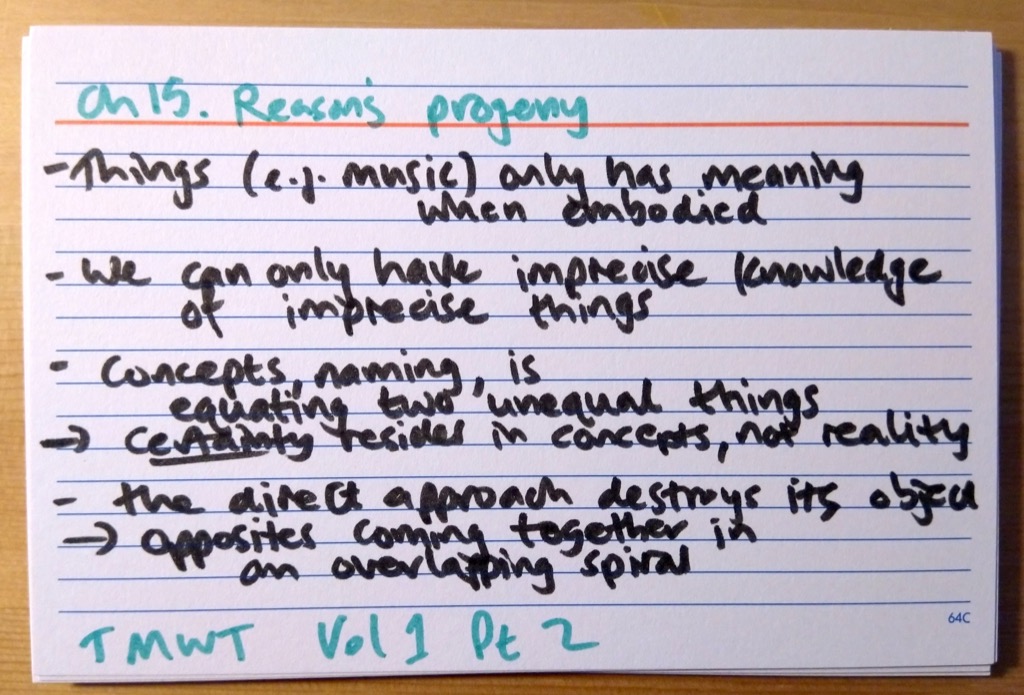 Ch 15. Reason's progeny
- Things (e.g. music) only has meaning
when embodied
- We can only have imprecise knowledge
of imprecise things
- Concepts, naming, is
equating two unequal things
→ certainty resides in concepts, not reality
- the direct approach destroys its object
→ opposites coming together in
an overlapping spiral
64C
TMWT Vol 1 Pt 2